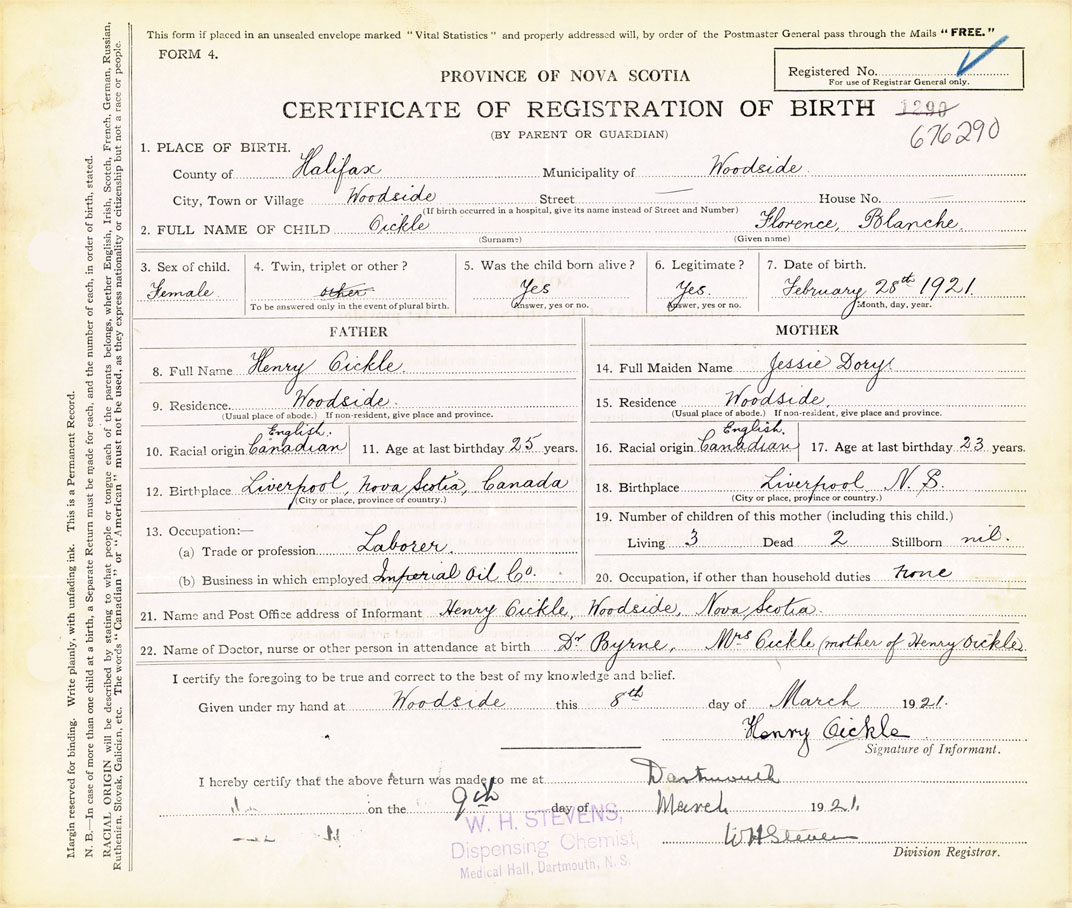 This form if placed in an unsealed envelope marked "Vital Statistics" and properly addressed will, by order of the Postmaster General pass through the Mails "FREE."
FORM 4.
Registered No.
For use of Registrar General only.
PROVINCE OF NOVA SCOTIA
CERTIFICATE OF REGISTRATION OF BIRTH 1290
(BY PARENT OR GUARDIAN)
676290
1. PLACE OF BIRTH.
County of Halifax Municipality of Woodside
City, Town or Village Woodside Street — House No. —
(If birth occurred in a hospital, give its name instead of Street and Number)
2. FULL NAME OF CHILD Oickle Florence, Blanche.
(Surname) (Given name)
3. Sex of child. 4. Twin, triplet or other? 5. Was the child born alive? 6. Legitimate? 7. Date of birth.
Female other Yes Yes. February 28th 1921.
To be answered only in the event of plural birth. Answer, yes or no. Answer, yes or no. Month, day, year.
FATHER
8. Full Name Henry Oickle.
9. Residence. Woodside.
(Usual place of abode.) If non-resident, give place and province.
English.
10. Racial origin Canadian 11. Age at last birthday 25 years.
12. Birthplace Liverpool, Nova Scotia, Canada
(City or place, province or country.)
13. Occupation:—
(a) Trade or profession Laborer.
(b) Business in which employed Imperial Oil Co.
MOTHER
14. Full Maiden Name Jessie Dory.
15. Residence Woodside.
(Usual place of abode.) If non-resident, give place and province.
English.
16. Racial origin Canadian 17. Age at last birthday 23 years.
18. Birthplace Liverpool, N. S.
(City or place, province or country.)
19. Number of children of this mother (including this child.)
Living 3 Dead 2 Stillborn nil.
20. Occupation, if other than household duties none
21. Name and Post Office address of Informant Henry Oickle, Woodside, Nova Scotia.
22. Name of Doctor, nurse or other person in attendance at birth Dr Byrne, Mrs Oickle (mother of Henry Oickle)
I certify the foregoing to be true and correct to the best of my knowledge and belief.
Given under my hand at Woodside this 8th day of March 1921.
Henry Oickle
Signature of Informant.
I hereby certify that the above return was made to me at Dartmouth
on the 9th day of March 1921.
W. H. STEVENS,
Dispensing Chemist,
Medical Hall, Dartmouth, N. S.
W H Stevens
Division Registrar.
Margin reserved for binding. Write plainly, with unfading ink. This is a Permanent Record.
N. B.—In case of more than one child at a birth, a Separate Return must be made for each, and the number of each, in order of birth, stated.
RACIAL ORIGIN will be described by stating to what people or tongue each of the parents belongs, whether English, Irish, Scotch, French, German, Russian,
Ruthenian, Slovak, Galician, etc. The words "Canadian" or "American" must not be used, as they express nationality or citizenship but not a race or people.